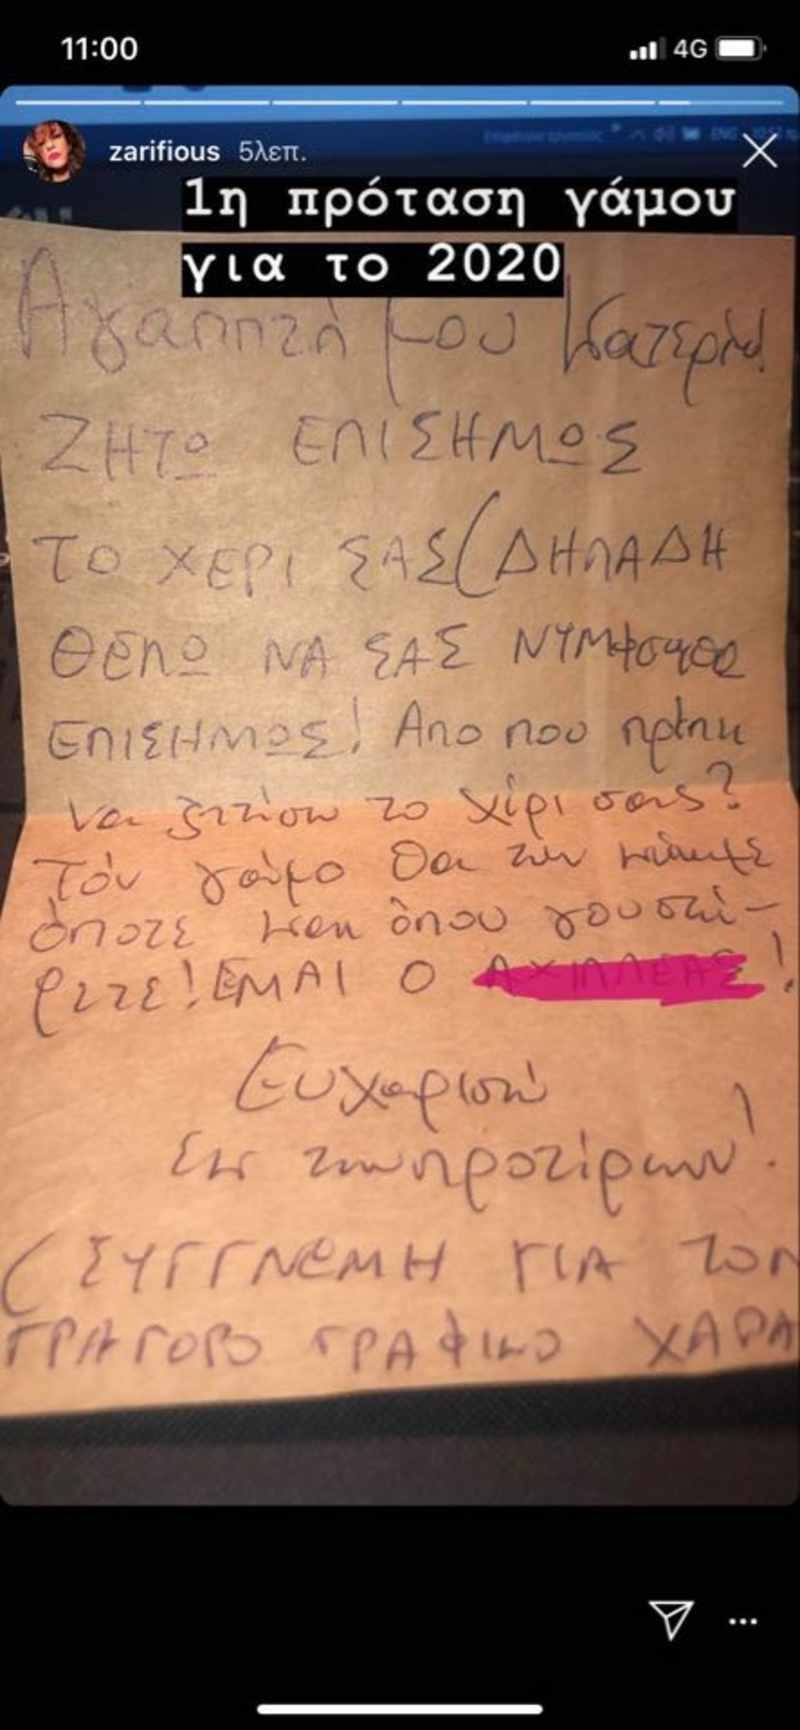 11:00
4G
zarifious 5λεπ.
1η πρόταση γάμου
για το 2020
Αγαπητή μου Κατερίνα!
ΖΗΤΩ ΕΠΙΣΗΜΩΣ
ΤΟ ΧΕΡΙ ΣΑΣ (ΔΗΛΑΔΗ
ΘΕΛΩ ΝΑ ΣΑΣ
ΕΠΙΣΗΜΩΣ! Απο που πρέπει
να ζιτίσω το χέρι σας?
Τόν γάμο θα τον κάνωμε
όποτε και όπου γουστά-
ρετε! ΕΙΜΑΙ Ο ΑΧΙΛΛΕΑΣ!
Ευχαριστώ
εκ των προτέρων!
(ΣΥΓΓΝΩΜΗ ΓΙΑ ΤΟΝ
ΓΡΑΦΙΚΟ ΧΑΡΑ